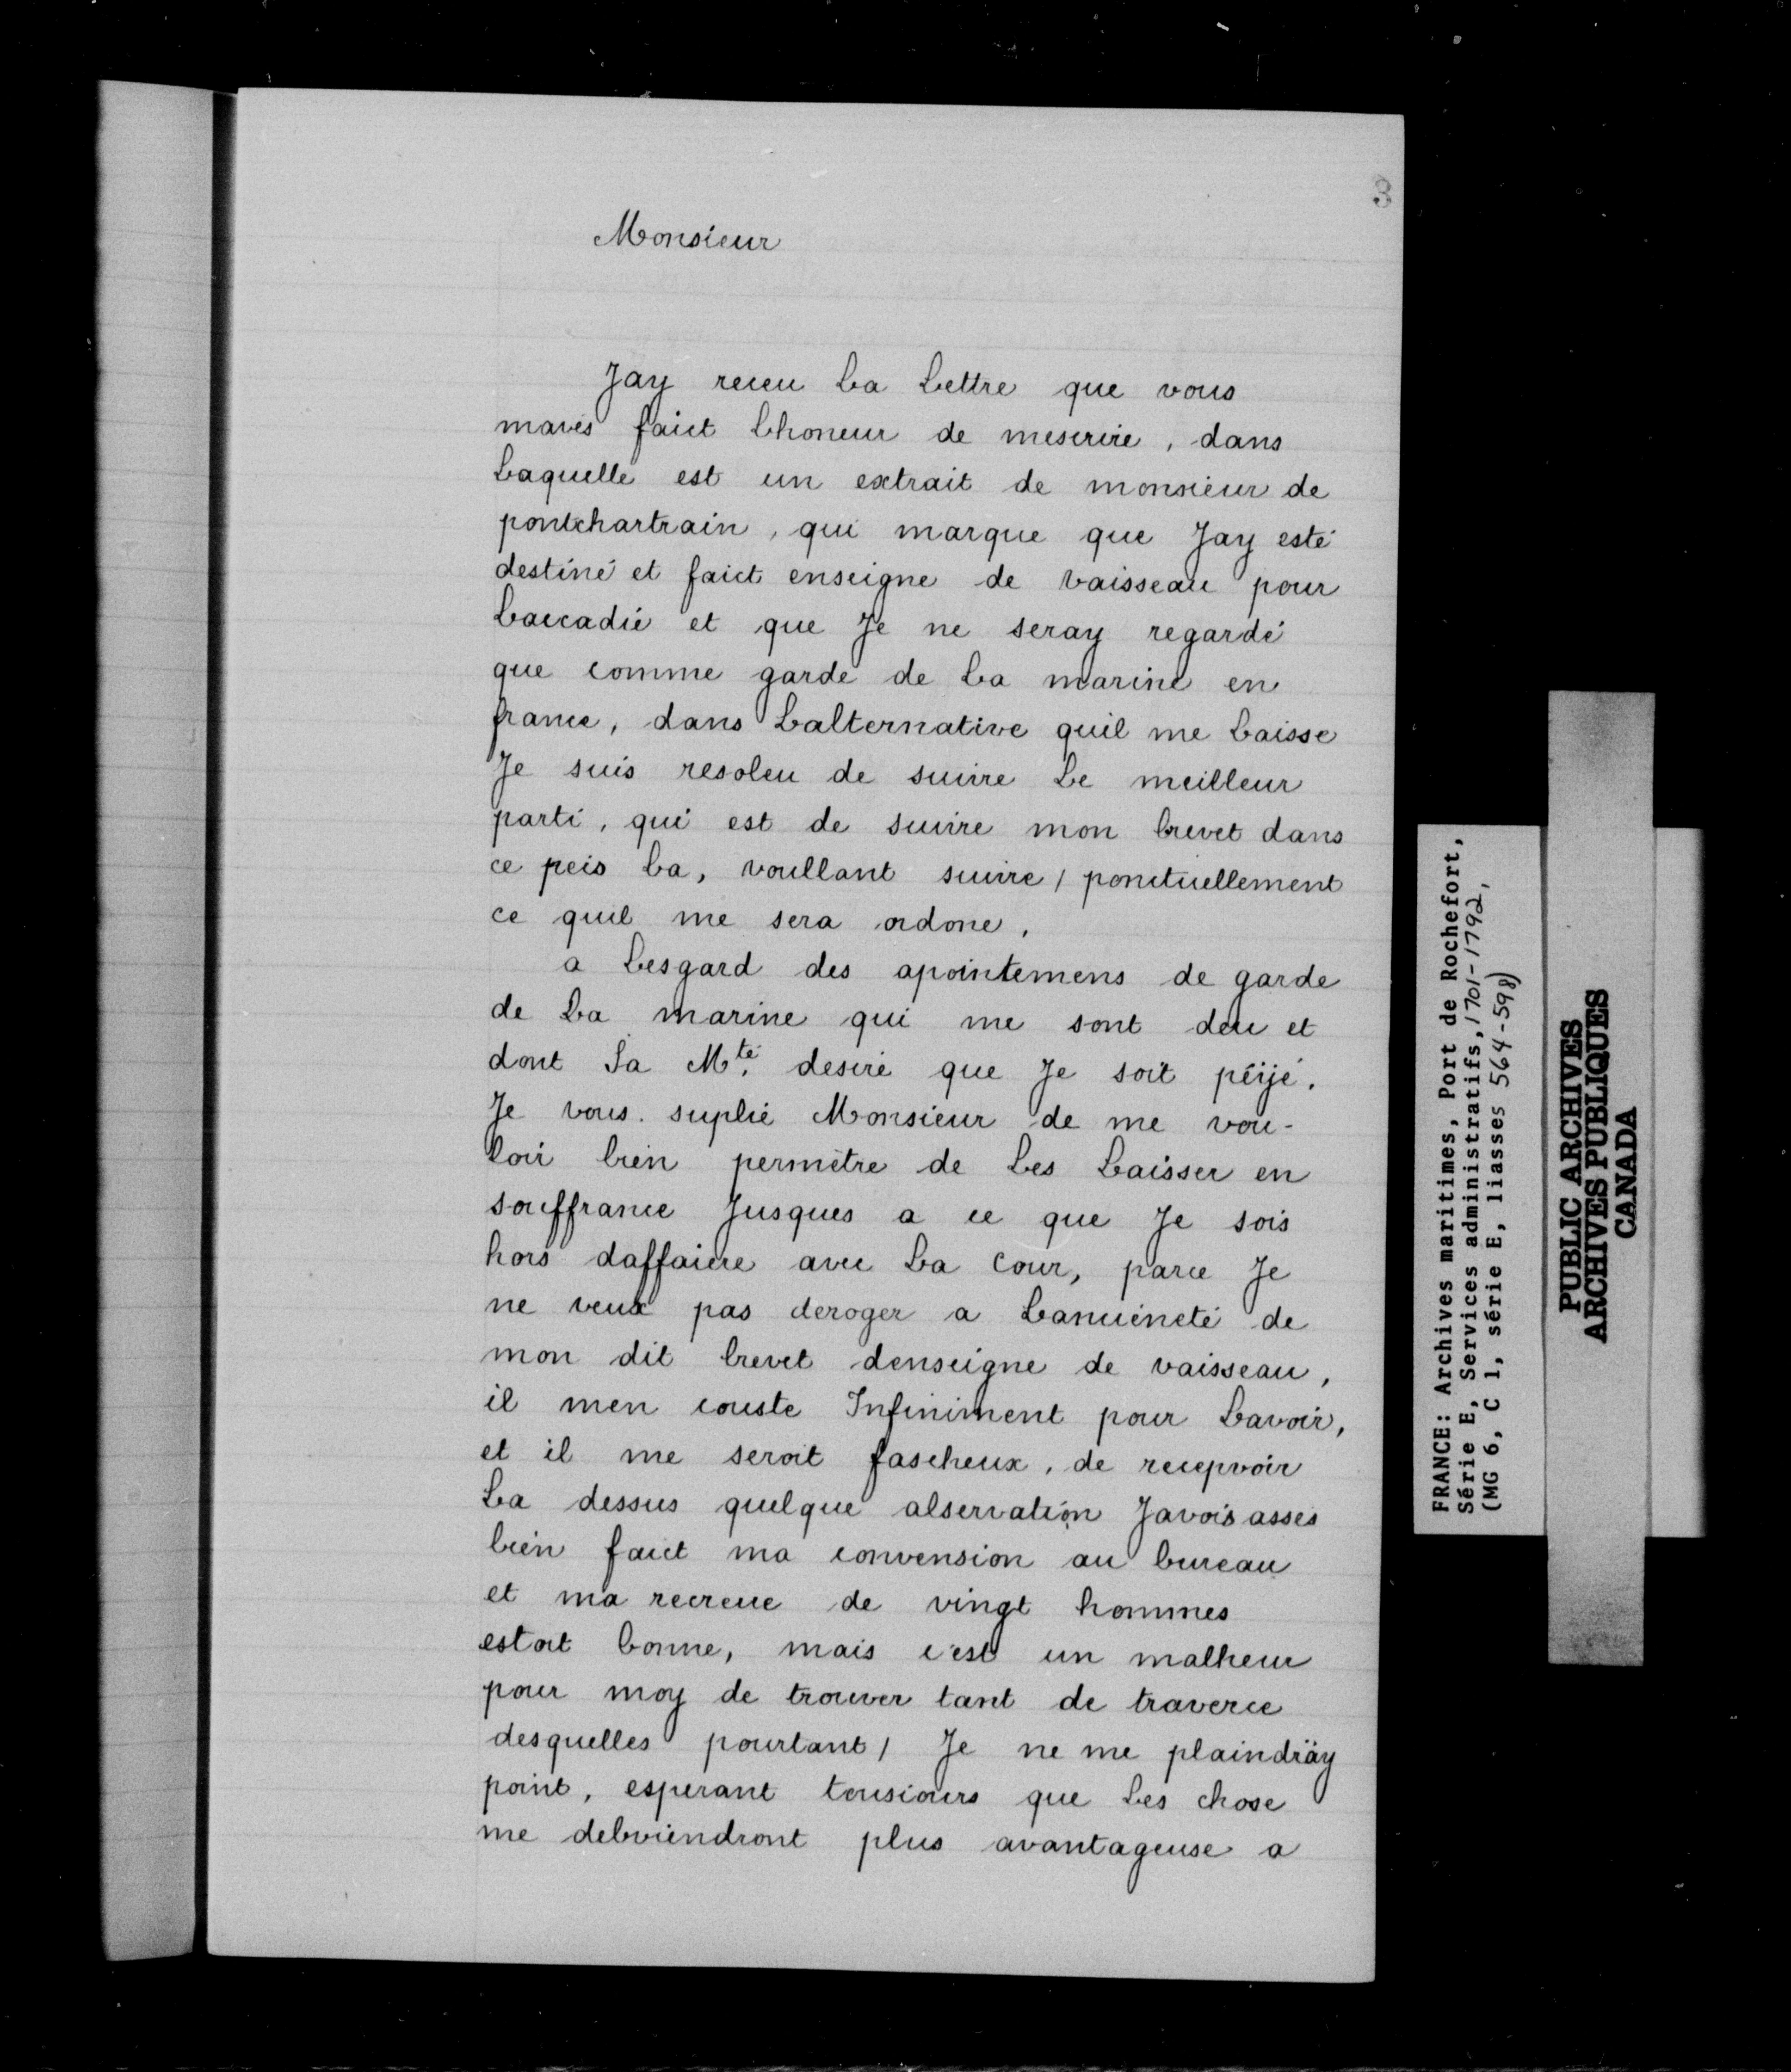 3
Monsieur
Jay receu La Lettre que vous
mavés faict Lhoneur de mescrire, dans
Laquelle est un extrait de monsieur de
pontchartrain, qui marque que Jay esté
destiné et faict enseigne de vaisseau pour
Laccadie et que Je ne seray regardé
que comme garde de La marine en
france, dans Lalternative quil me Laisse
Je suis resoleu de suivre Le meilleur
parti, qui est de suivre mon brevet dans
ce peis La, voullant suivre, ponctuellement
ce quil me sera ordone,
a Lesgard des apointemens de garde
de La marine qui me sont deu et
dont Sa Mté. desire que Je soit péijé.
Je vous suplie Monsieur de me vou-
loir bien permetre de Les Laisser en
souffrance Jusques a ce que Je sois
hors daffaiere avec La Cour, parce Je
ne veux pas deroger a Lanciéneté de
mon dit brevet denseigne de vaisseau,
il men couste Infiniment pour Lavoir,
et il me seroit fascheux, de recepvoir
La dessus quelque alservation Javois asses
bien faict ma convension au bureau
et ma recreue de vingt hommes
estoit bonne, mais c'est un malheur
pour moy de trouver tant de traverce
desquelles pourtant, Je ne me plaindräy
point, esperant tousiours que Les chose
me debviendront plus avantageuse a
FRANCE: Archives maritimes, Port de Rochefort,
Série E, Services administratifs, 1701-1792,
(MG 6, C 1, série E, liasses 564-598)
PUBLIC ARCHIVES
ARCHIVES PUBLIQUES
CANADA